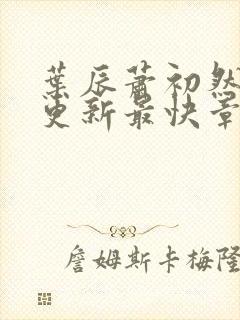 葉辰蕭初然
更新最快章
詹姆斯卡梅隆